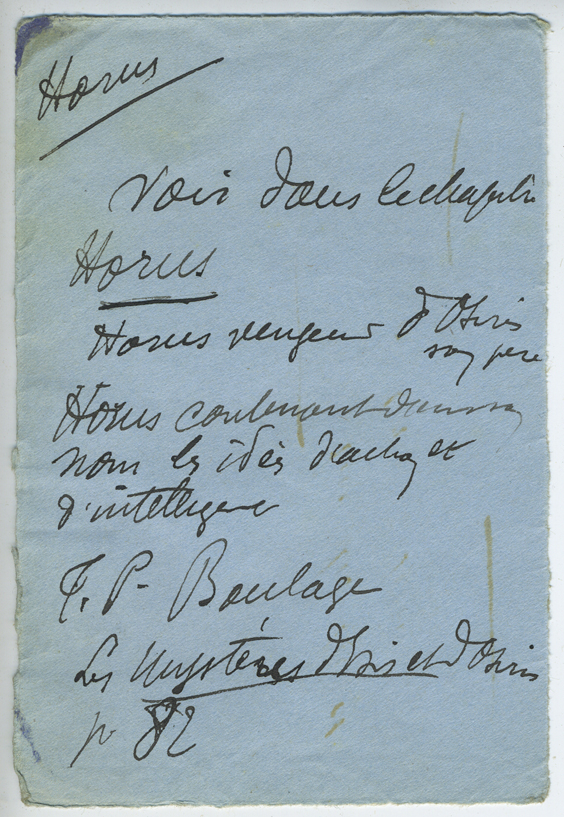 Horus
Voir dans le chapitre
Horus
Horus vengeur d'Osiris
son père
Horus contenant dans son
nom les idées d'action et
d'intelligence
T. P. Boulage
Les Mystères d'Isis et d'Osiris
p 82